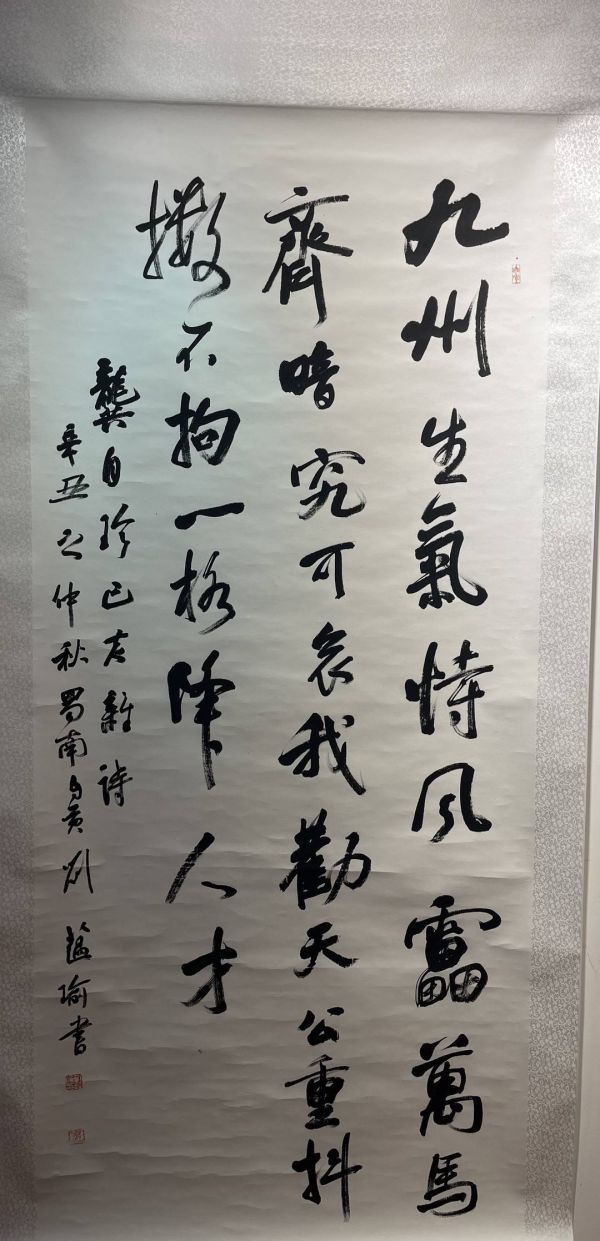 九州生氣恃風靁萬馬
齊暗究可哀我勸天公重抖
擻不拘一格降人才
龔自珍己亥雜詩
辛丑之仲秋蜀南自貢刘蕴瑜書